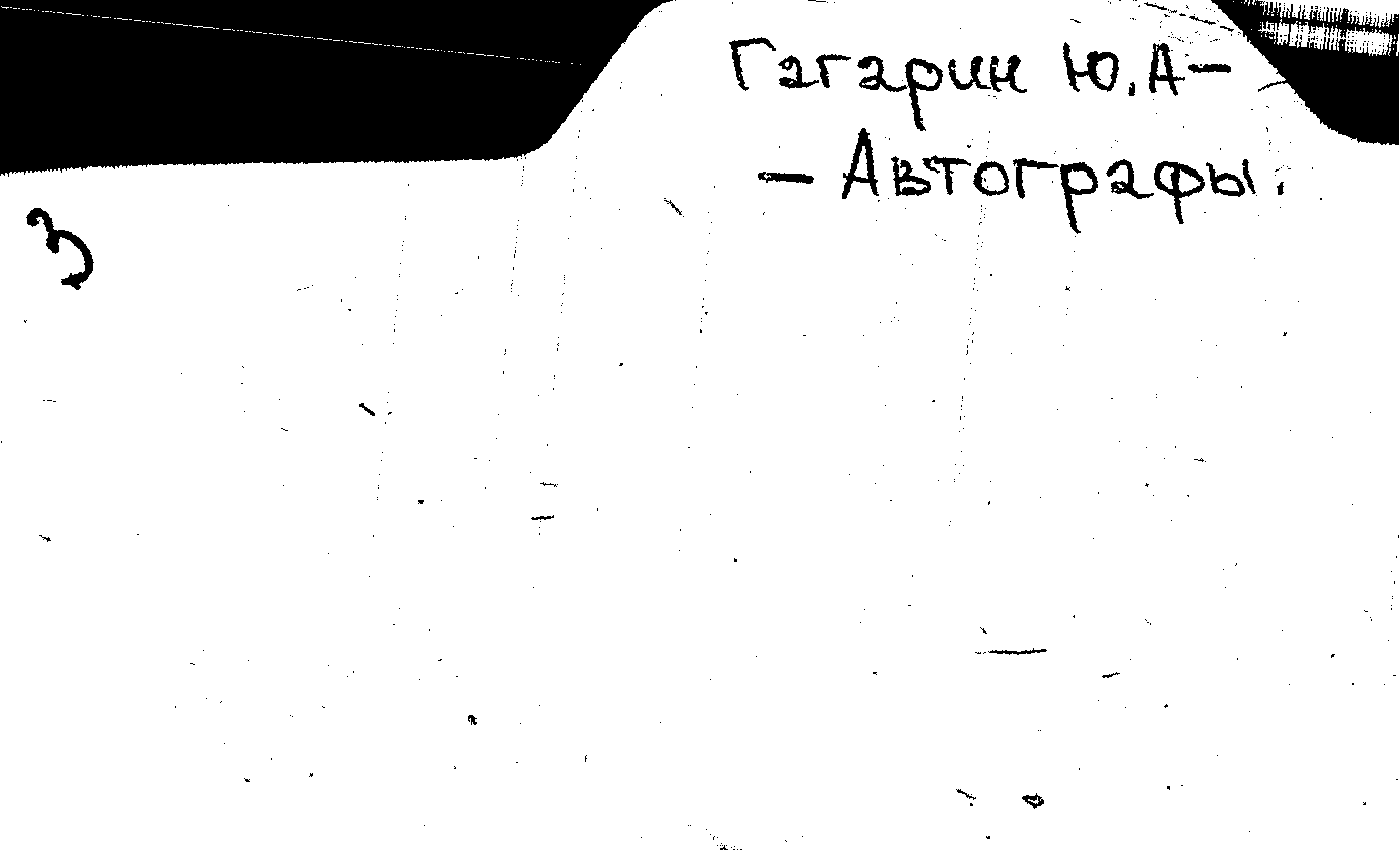 Гагарин Ю.А–
– Автографы.
З